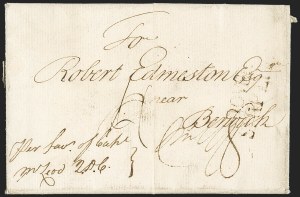 To
Robert Edmeston Esqr
near
Berwick
Per favr. of Capt
McLeod